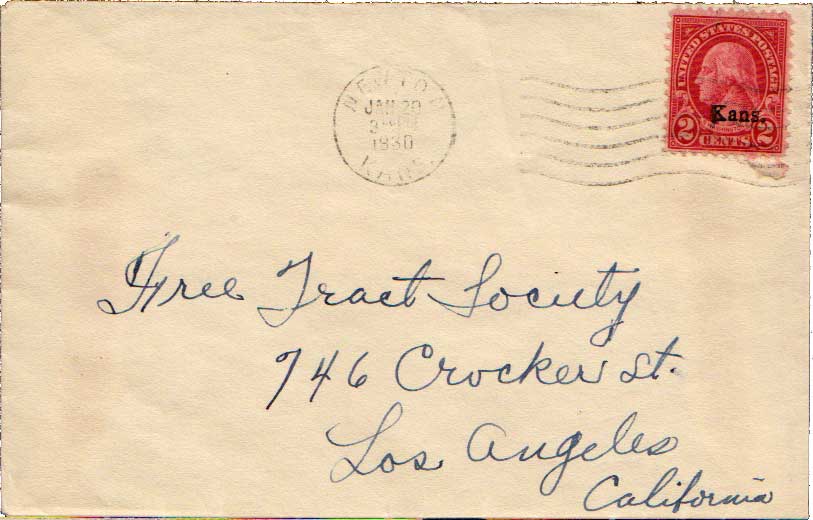 NEWTON
JAN 29
1930
KANS.
UNITED STATES POSTAGE
Kans.
2 CENTS 2
Free Tract Society
746 Crocker St.
Los Angeles
California